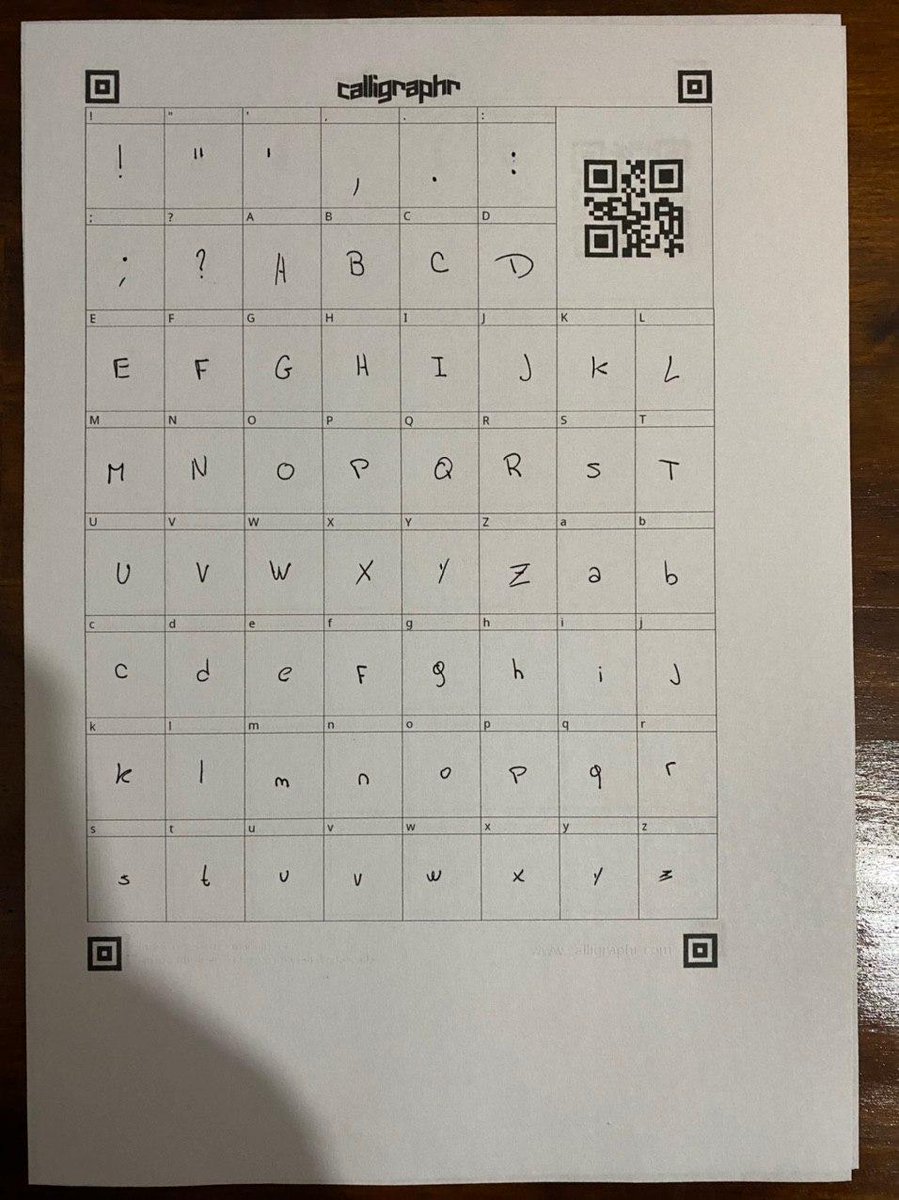 calligraphr
! " ' , . :
! " ' , . :
; ? A B C D
; ? A B C D
E F G H I J K L
E F G H I J K L
M N O P Q R S T
M N O P Q R S T
U V W X Y Z a b
U V W X Y Z a b
c d e f g h i j
c d e F g h i J
k l m n o p q r
k l m n o p q r
s t u v w x y z
s t u v w x y z
www.calligraphr.com